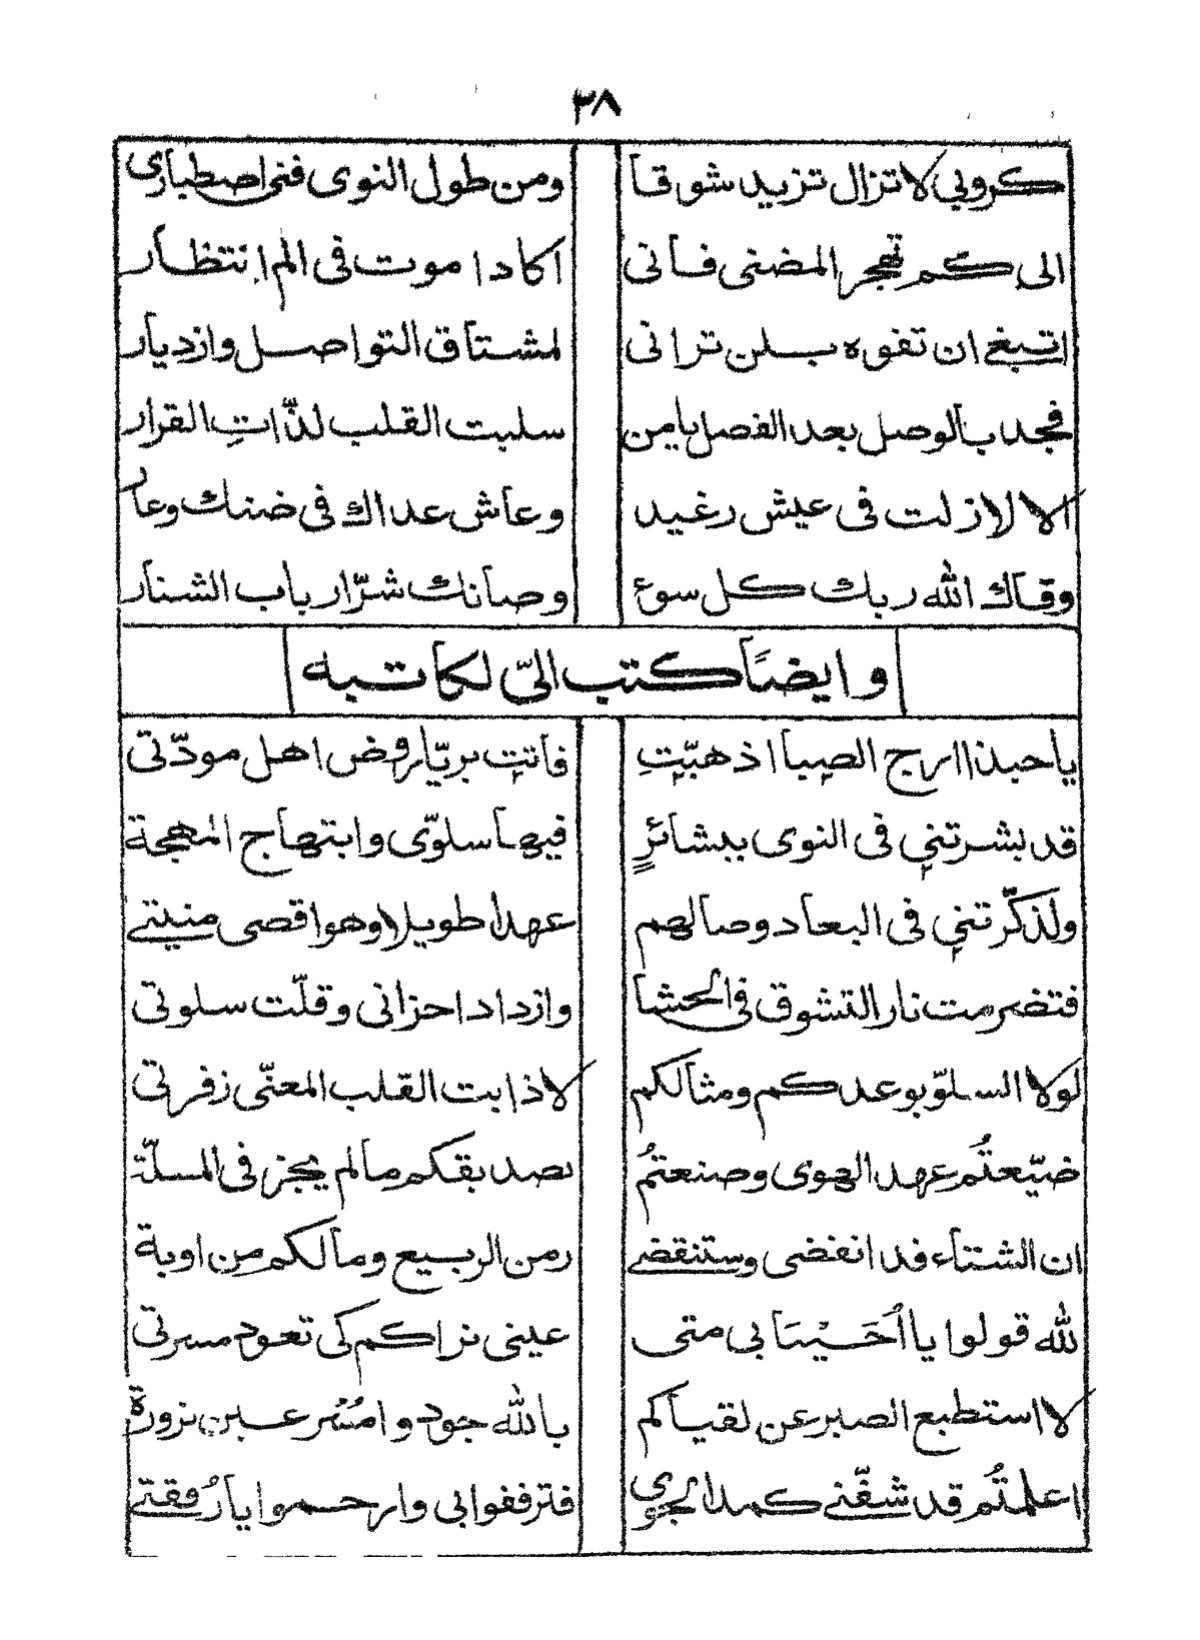 ٣٨
كروبي لا تزال تزيد شوقا ومن طول النوى فنى اصطبارى
الى كم تهجر المضنى فانى اكاد اموت فى الم انتظار
اتبغى ان تفوه بلن ترانى لمشتاق التواصل وازديار
فجد بالوصل بعد الفصل يا من سلبت القلب لذّاتِ القرار
الا لازلت فى عيش رغيد وعاش عداك فى ضنك وعار
وقاك الله ربك كل سوء وصانك شرّ ارباب الشنار
وايضاً كتب الىّ لكاتبه
يا حبذا ارج الصبا اذ هبّتِ فاتت بريّا روض اهل مودّتى
قد بشرتني فى النوى ببشائرٍ فيها سلوّى وابتهاج المهجة
ولذكّرتني فى البعاد وصالهم عهدا طويلا وهو اقصى منيتى
فتضرمت نار التشوق فى الحشا وازداد احزانى وقلّت سلوتى
لولا السلوّ بوعدكم ومثالكم لاذابت القلب المعنّى زفرتى
ضيّعتُم عهد الهوى وصنعتمُ بصديقكم مالم يجز فى الملّة
ان الشتاء قد انقضى وستنقضى زمن الربيع وما لكم من اوبة
لله قولوا يا اُحَيْبَابى متى عينى تراكم كى تعود مسرتى
لا استطيع الصبر عن لقياكم بالله جودوا مُسْرعين بزورة
اعلمتُم قد شفّنى كمد الجوى فترفقوا بى وارحموا يا رُفقتى